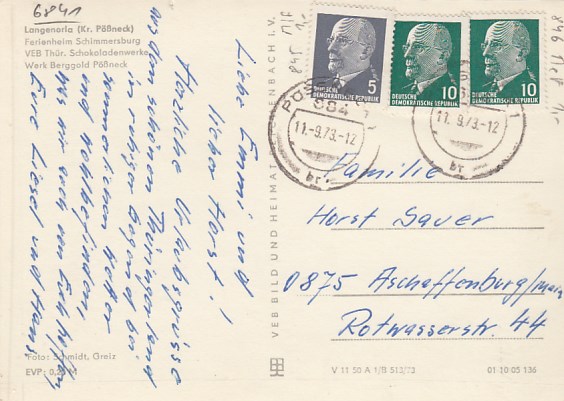 6841
Langenorla (Kr. Pößneck)
Ferienheim Schimmersburg
VEB Thür. Schokoladenwerke
Werk Berggold Pößneck
Liebe Emmi und
lieber Horst!
Herzliche Urlaubsgrüsse
aus dem schönen Thüringerland
in ruhiger Gegend bei
Wetter
und Wohlbefinden,
wir auch von Euch hoffen
Eure Liesel und Hans
Foto: Schmidt, Greiz
EVP: 0,20 M
VEB BILD UND HEIMAT REICHENBACH I. V.
845
MIF
5
DEUTSCHE
DEMOKRATISCHE REPUBLIK
10
DEUTSCHE
DEMOKRATISCHE REPUBLIK
10
DEUTSCHE
DEMOKRATISCHE REPUBLIK
846 MIF
684
11.-9.73.-12
br
11.-9.73.-12
br
Familie
Horst Sauer
0875 Aschaffenburg/Main
Rotwasserstr. 44
V 11 50 A 1/B 513/73
01 10 05 136